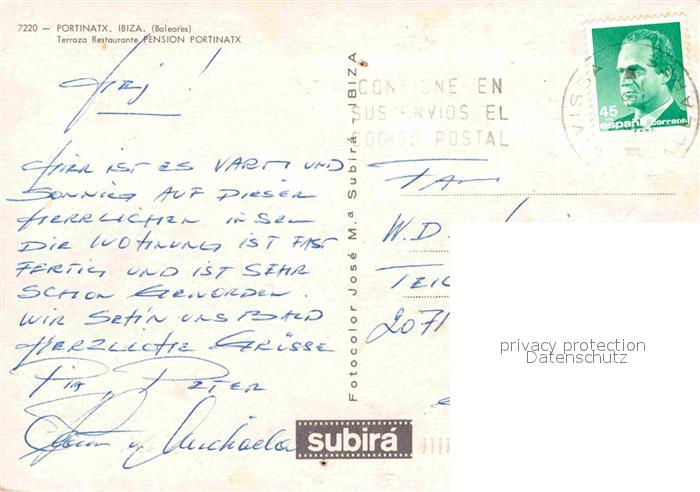 7220 — PORTINATX. IBIZA. (Baleares)
Terraza Restaurante PENSION PORTINATX
Hej!
HIER IST ES VARM UND
SONNIG AUF DIESER
HERRLICHEN INSEL
DIE WOHNUNG IST FAST
FERTIG UND IST SEHR
SCHÖN GEWORDEN.
WIR SEHN UNS BALD
HERZLICHE GRÜSSE
PIA PETER
u. Michaela
Fotocolor José M.ª Subirá - IBIZA
subirá
CONSIGNE EN
SUS ENVIOS EL
CODIGO POSTAL
45
españa correos
FAM
W.D.
TEIC
2071
privacy protection
Datenschutz